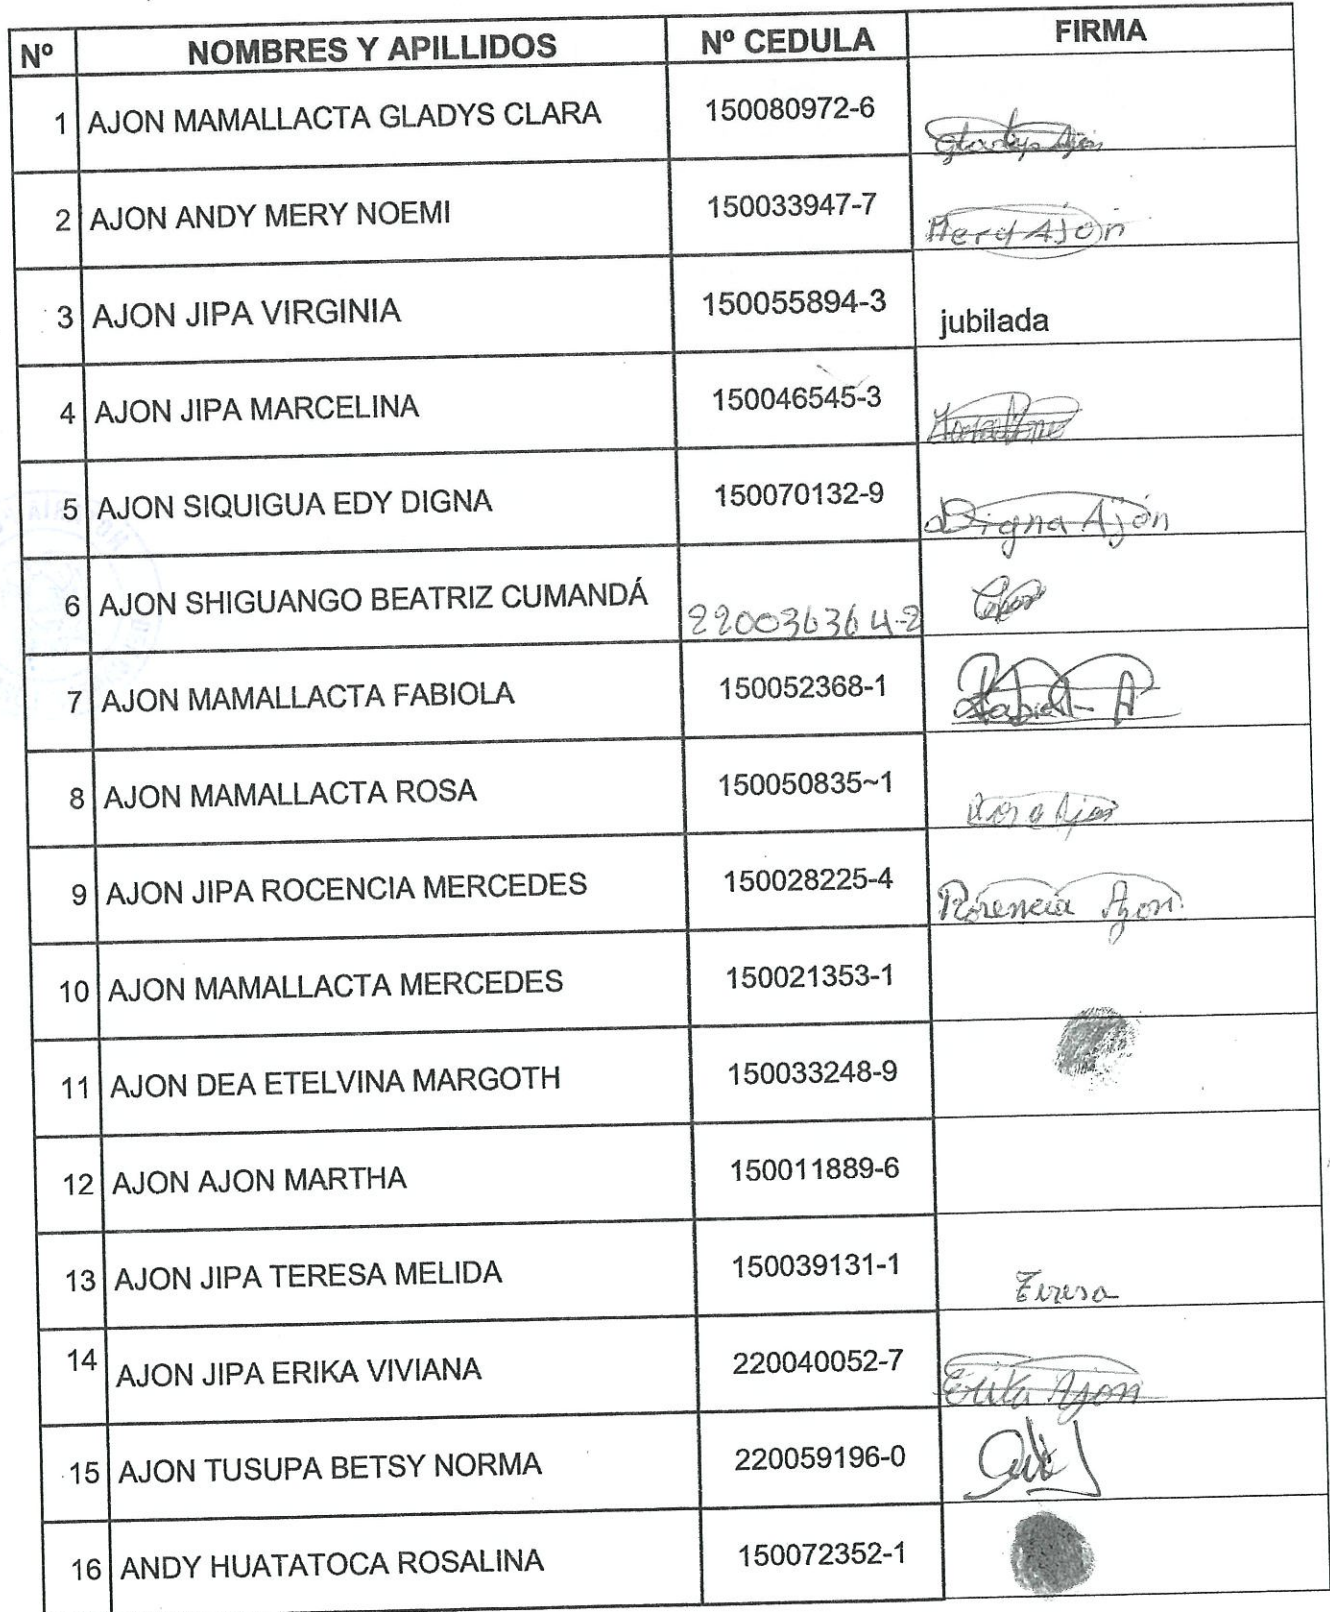 Nº NOMBRES Y APILLIDOS Nº CEDULA FIRMA
1 AJON MAMALLACTA GLADYS CLARA 150080972-6 Gladys Ajon
2 AJON ANDY MERY NOEMI 150033947-7 Mery Ajón
3 AJON JIPA VIRGINIA 150055894-3 jubilada
4 AJON JIPA MARCELINA 150046545-3
5 AJON SIQUIGUA EDY DIGNA 150070132-9 Digna Ajón
6 AJON SHIGUANGO BEATRIZ CUMANDÁ 220036364-2
7 AJON MAMALLACTA FABIOLA 150052368-1 Fabiola A
8 AJON MAMALLACTA ROSA 150050835~1 Rosa Ajon
9 AJON JIPA ROCENCIA MERCEDES 150028225-4 Rosencia Ajon
10 AJON MAMALLACTA MERCEDES 150021353-1
11 AJON DEA ETELVINA MARGOTH 150033248-9
12 AJON AJON MARTHA 150011889-6
13 AJON JIPA TERESA MELIDA 150039131-1 Teresa
14 AJON JIPA ERIKA VIVIANA 220040052-7 Erika Ajon
15 AJON TUSUPA BETSY NORMA 220059196-0
16 ANDY HUATATOCA ROSALINA 150072352-1